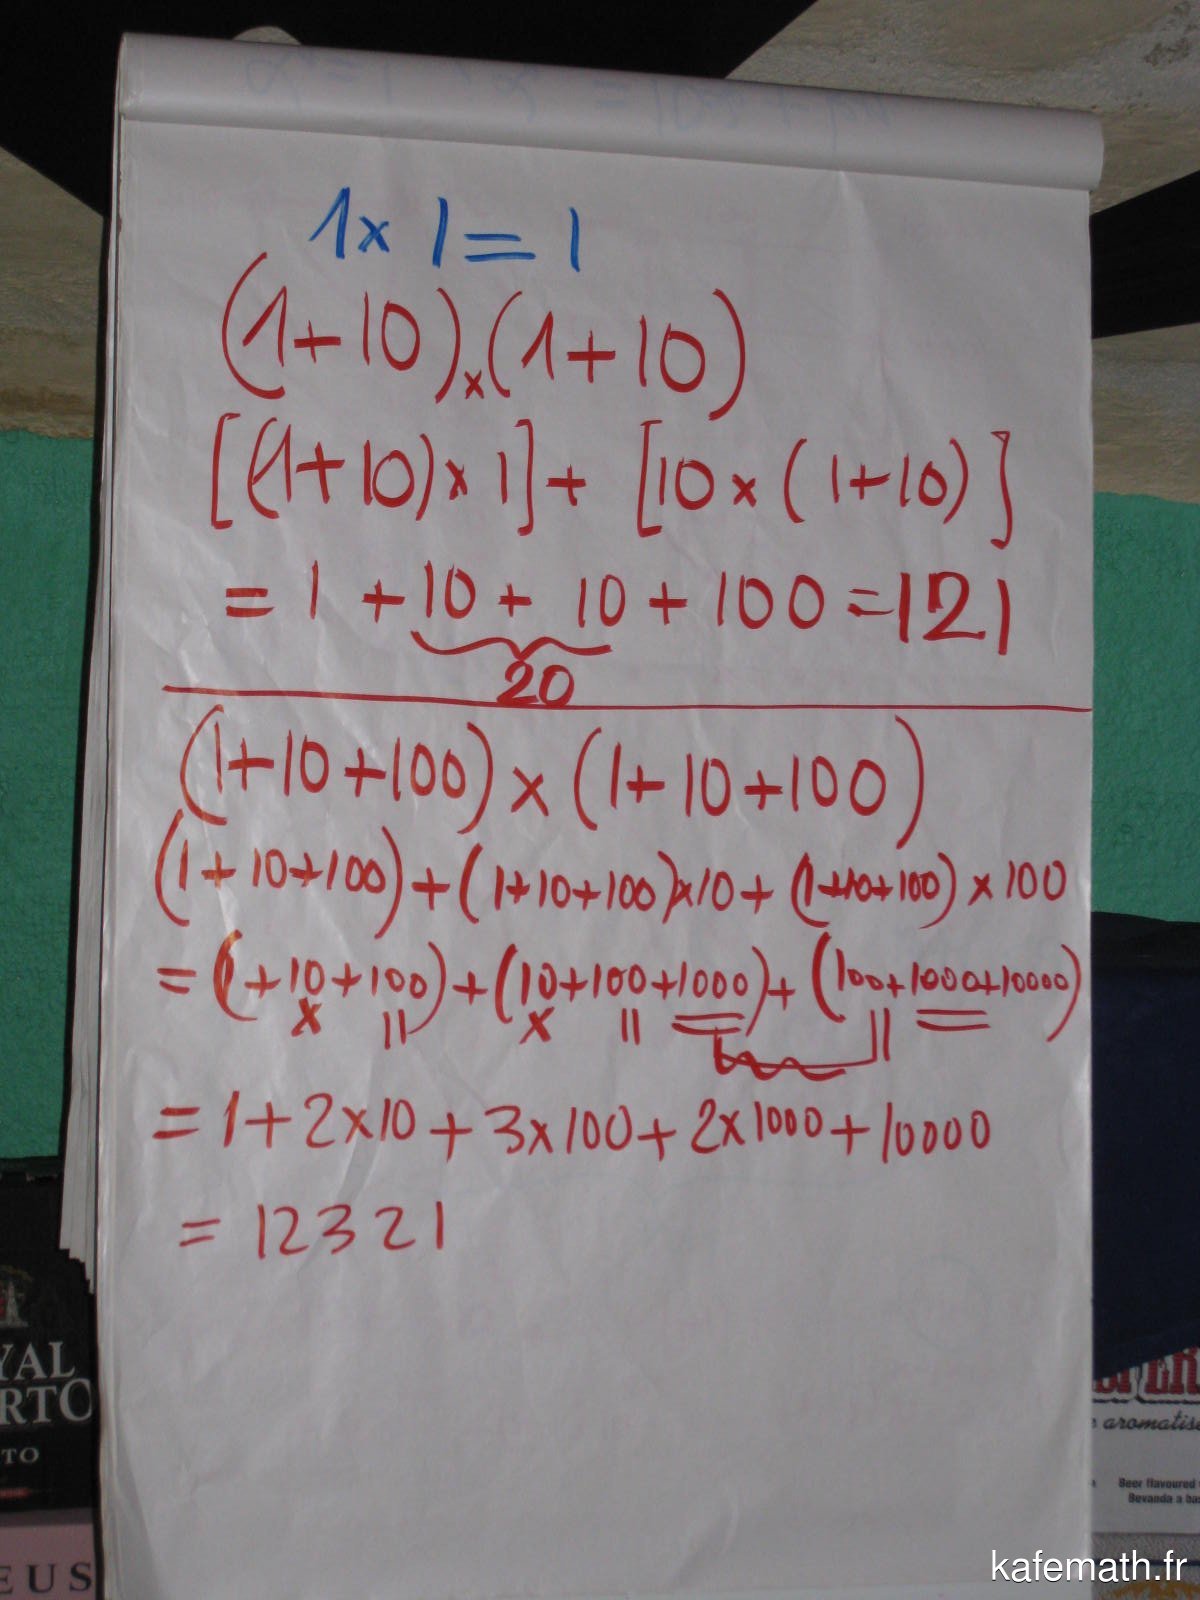 1 × 1 = 1
(1+10) × (1+10)
[(1+10) × 1] + [10 × (1+10)]
= 1 + 10 + 10 + 100 = 121
20
(1+10+100) × (1+10+100)
(1+10+100) + (1+10+100) × 10 + (1+10+100) × 100
= (1+10+100) + (10+100+1000) + (100+1000+10000)
× || × || ||
= 1 + 2×10 + 3×100 + 2×1000 + 10000
= 12321
YAL
RTO
TO
EUS
aromatis
Beer flavoured
Bevanda a ba
kafemath.fr